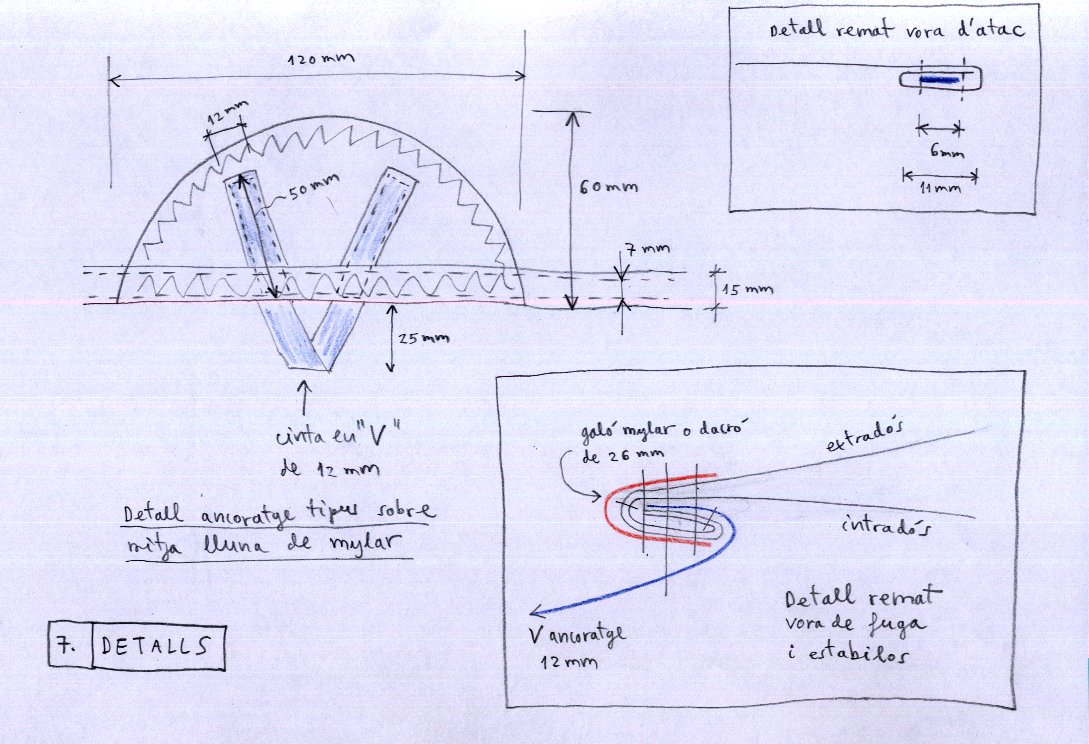 Detall remat vora d'atac
6mm
11mm
120 mm
12 mm
50 mm
60 mm
7 mm
15 mm
25 mm
cinta en "V"
de 12 mm
Detall ancoratge tipus sobre
mitja lluna de mylar
7. DETALLS
galó mylar o dacró
de 26 mm
extradós
intradós
V ancoratge
12 mm
Detall remat
vora de fuga
i estabilos